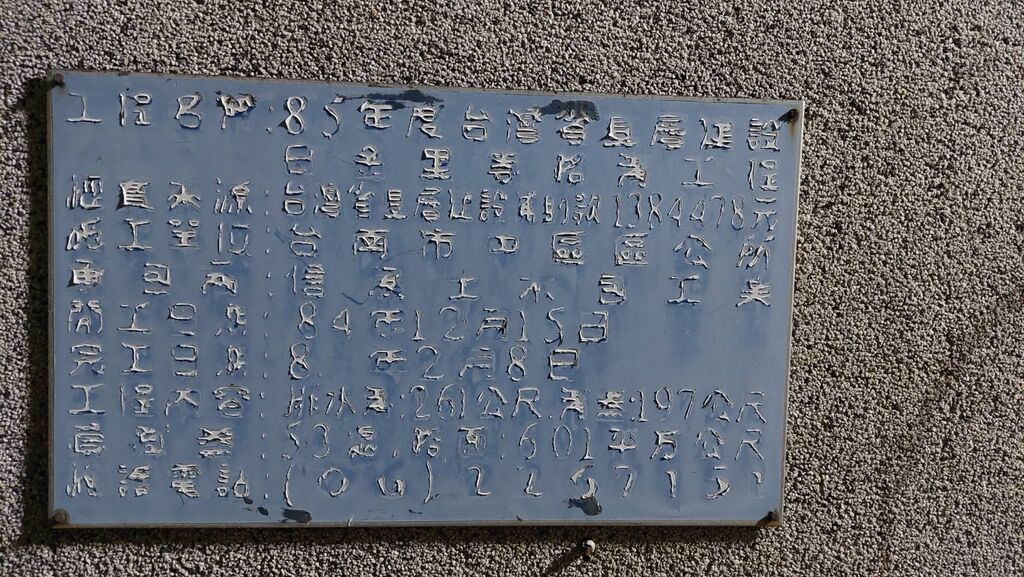 工程名稱:85年度台灣省基層建設
里巷路溝工程
經費來源:台灣省基層建設補助款1384478元
施工單位:台南市中區區公所
承包商:信 土木包工業
開工日期:84年12月15日
完工日期:8 年2月8日
工程內容:排水溝:261公尺.溝蓋:197公尺
:53 .路面:601平方公尺
電話:(06)2257151